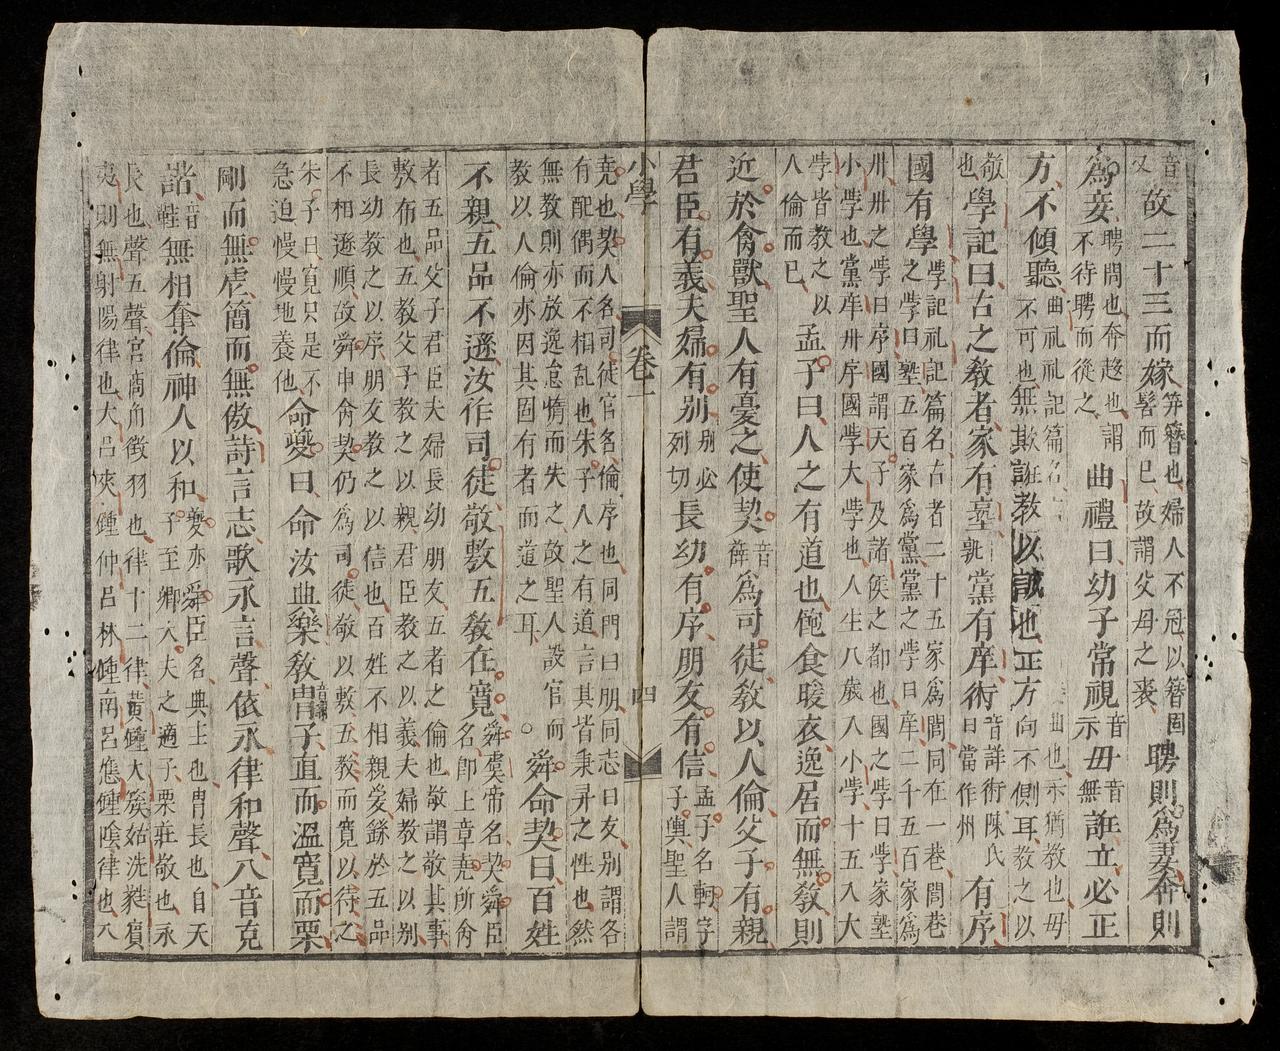 音又故二十三而嫁笄簪也婦人不冠以簪固髻而已故謂父母之喪聘則為妻奔則
為妾聘問也奔趍也謂不待聘而從之曲禮曰幼子常視音示毋音無誑立必正
方不傾聽曲礼礼記篇名曲也示猶教也毋不可也無欺誑教以誠也正方向不側耳教之以
敬也學記曰古之敎者家有塾孰黨有庠術音詳術陳氏曰當作州有序
國有學学記礼記篇名古者二十五家為閭同在一巷閭巷之学曰塾五百家為黨黨之学曰庠二千五百家為
卅卅之学曰序國謂天子及諸侯之都也國之学曰学家塾
小学也黨庠卅序國学大学也人生八歳入小学十五入大
学皆教之以人倫而已孟子曰人之有道也飽食暖衣逸居而無敎則
近於禽獸聖人有憂之使契音薛為司徒敎以人倫父子有親
君臣有義夫婦有别别必列切長幼有序朋友有信孟子名軻字子輿聖人謂
小學 卷一 四
堯也契人名司徒官名倫序也同門曰朋同志曰友别謂各
有配偶而不相乱也朱子人之有道言其皆秉彛之性也然
無教則亦放逸怠惰而失之故聖人設官而教以人倫亦因其固有者而道之耳○舜命契曰百姓
不親五品不遜汝作司徒敬敷五敎在寬舜虞帝名契舜臣名卽上章堯所命
者五品父子君臣夫婦長幼朋友五者之倫也敬謂敬其事
敷布也五教父子教之以親君臣教之以義夫婦教之以别
長幼教之以序朋友教之以信也百姓不相親愛繇於五品
不相遜順故舜申命契仍為司徒敬以敷五教而寛以待之
朱子曰寛只是不急迫慢慢地養他命夔曰命汝典樂敎胄子直而溫寬而栗
剛而無虐簡而無傲詩言志歌永言聲依永律和聲八音克
諧音鞋無相奪倫神人以和夔亦舜臣名典主也胄長也自天子至卿大夫之適子栗莊敬也永
長也聲五聲宮商角徵羽也律十二律黃鍾大簇姑洗蕤賓
夷則無射陽律也大呂夾鍾仲呂林鍾南呂應鍾陰律也八